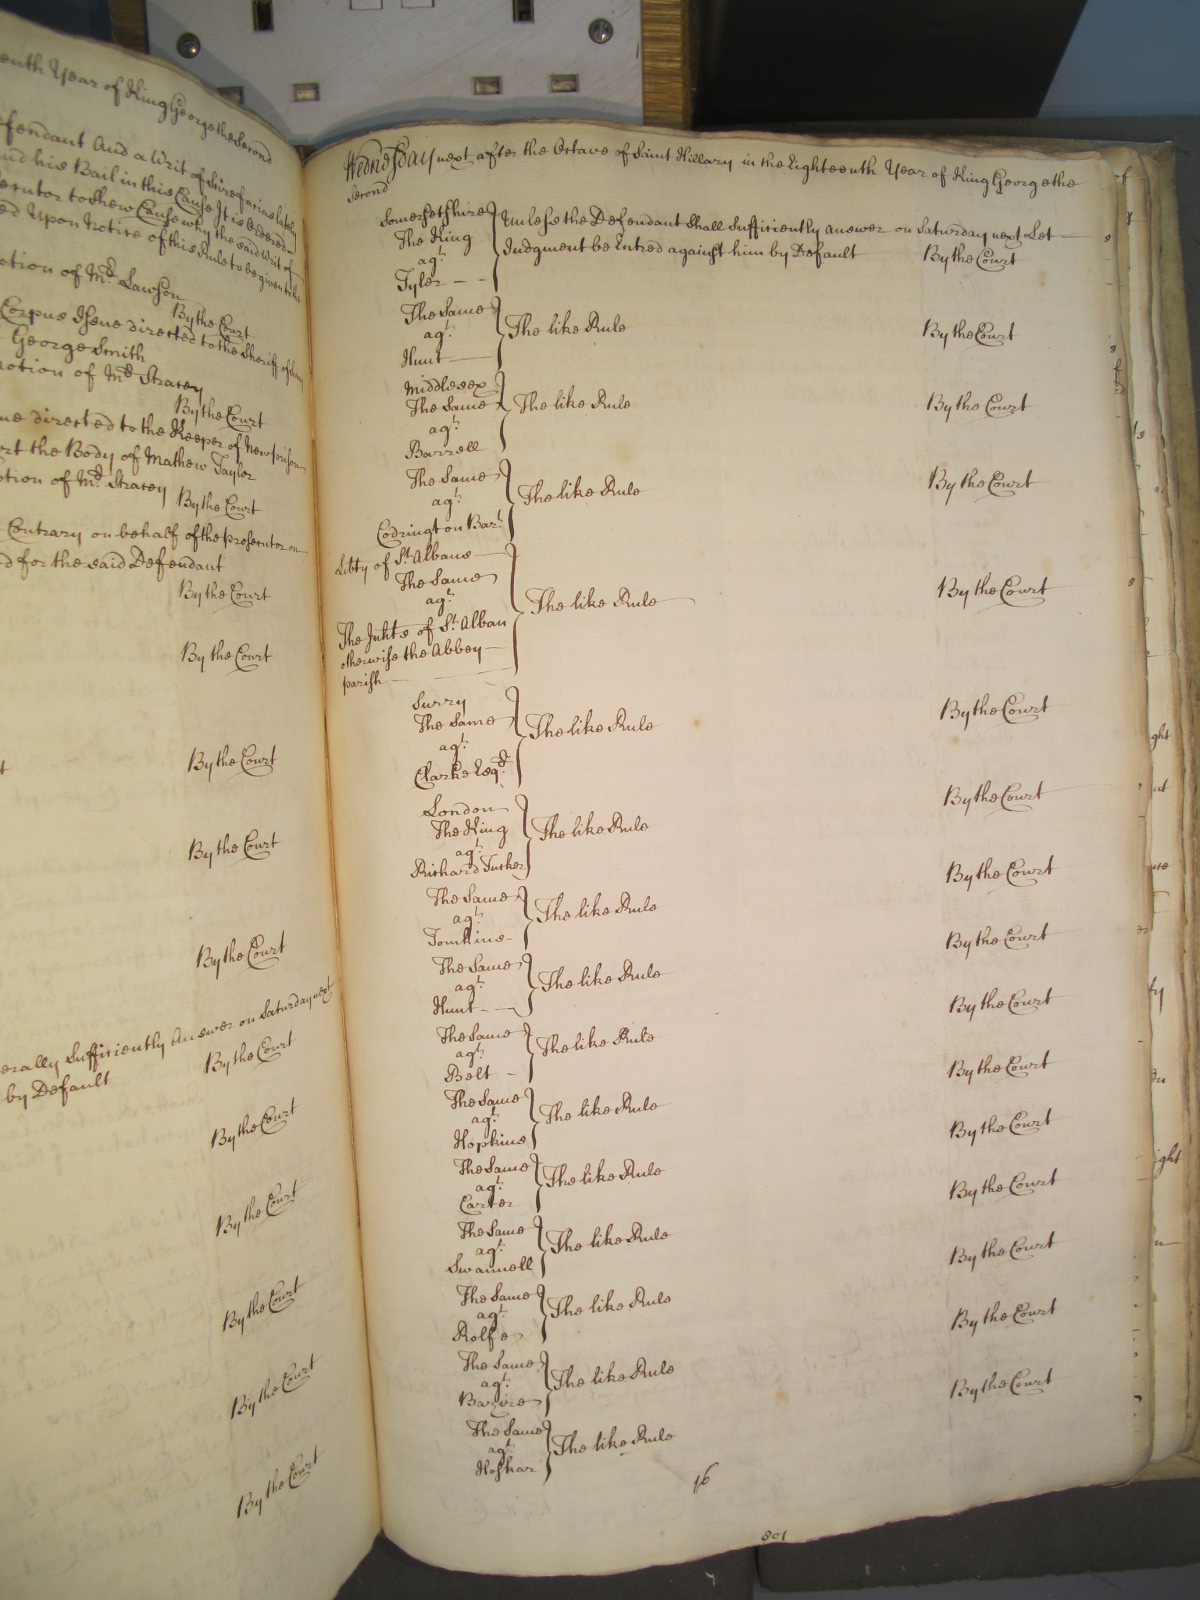 enth Year of King George the Second
efendant And a Writ of Scire facias lately
and his Bail in this Cause It is Ordered
ecutor to shew Cause why the said Writ of
ed Upon Notice of this Rule to be given to the
otion of Mr. Lawson
By the Court
Corpus Issue directed to the Sheriff of
George Smith
motion of Mr. Stracey
By the Court
ue directed to the Keeper of New prison
ort the Body of Mathew Taylor
otion of Mr. Stracey
By the Court
Contrary on behalf of the prosecutor on
d for the said Defendant
By the Court
By the Court
By the Court
By the Court
By the Court
erally Sufficiently Answer on Saturday next
by Default
By the Court
By the Court
By the Court
By the Court
By the Court
By the Court
Wednesday next after the Octave of Saint Hillary in the Eighteenth Year of King George the
Second
Somersetshire
The King
agt.
Tyler
Unless the Defendant Shall Sufficiently answer on Saturday next Let
Judgment be Entred against him by Default By the Court
The Same
agt.
Hunt
The like Rule By the Court
Middlesex
The Same
agt.
Barrell
The like Rule By the Court
The Same
agt.
Codrington Bart.
The like Rule By the Court
Libty of St. Albans
The Same
agt.
The Inhts of St. Alban
otherwise the Abbey
parish
The like Rule By the Court
Surry
The Same
agt.
Clarke Esqr.
The like Rule By the Court
London
The King
agt.
Richard Tucker
The like Rule By the Court
The Same
agt.
Tomkins
The like Rule By the Court
The Same
agt.
Hunt
The like Rule By the Court
The Same
agt.
Belt
The like Rule By the Court
The Same
agt.
Hopkins
The like Rule By the Court
The Same
agt.
Carter
The like Rule By the Court
The Same
agt.
Swannell
The like Rule By the Court
The Same
agt.
Rolfe
The like Rule By the Court
The Same
agt.
The like Rule By the Court
The Same
agt.
The like Rule By the Court
16
108